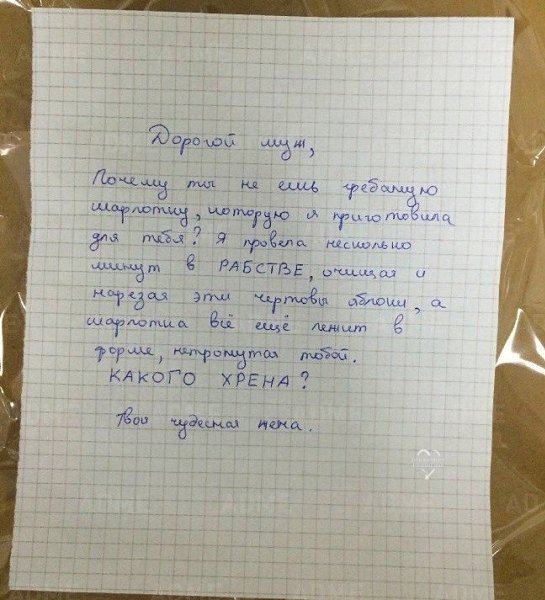 Дорогой муж,
Почему ты не ешь гребаную
шарлотку, которую я приготовила
для тебя? Я провела несколько
минут в РАБСТВЕ, очищая и
нарезая эти чертовы яблоки, а
шарлотка всё ещё лежит в
форме, нетронутая тобой.
КАКОГО ХРЕНА?
Твоя чудесная жена.